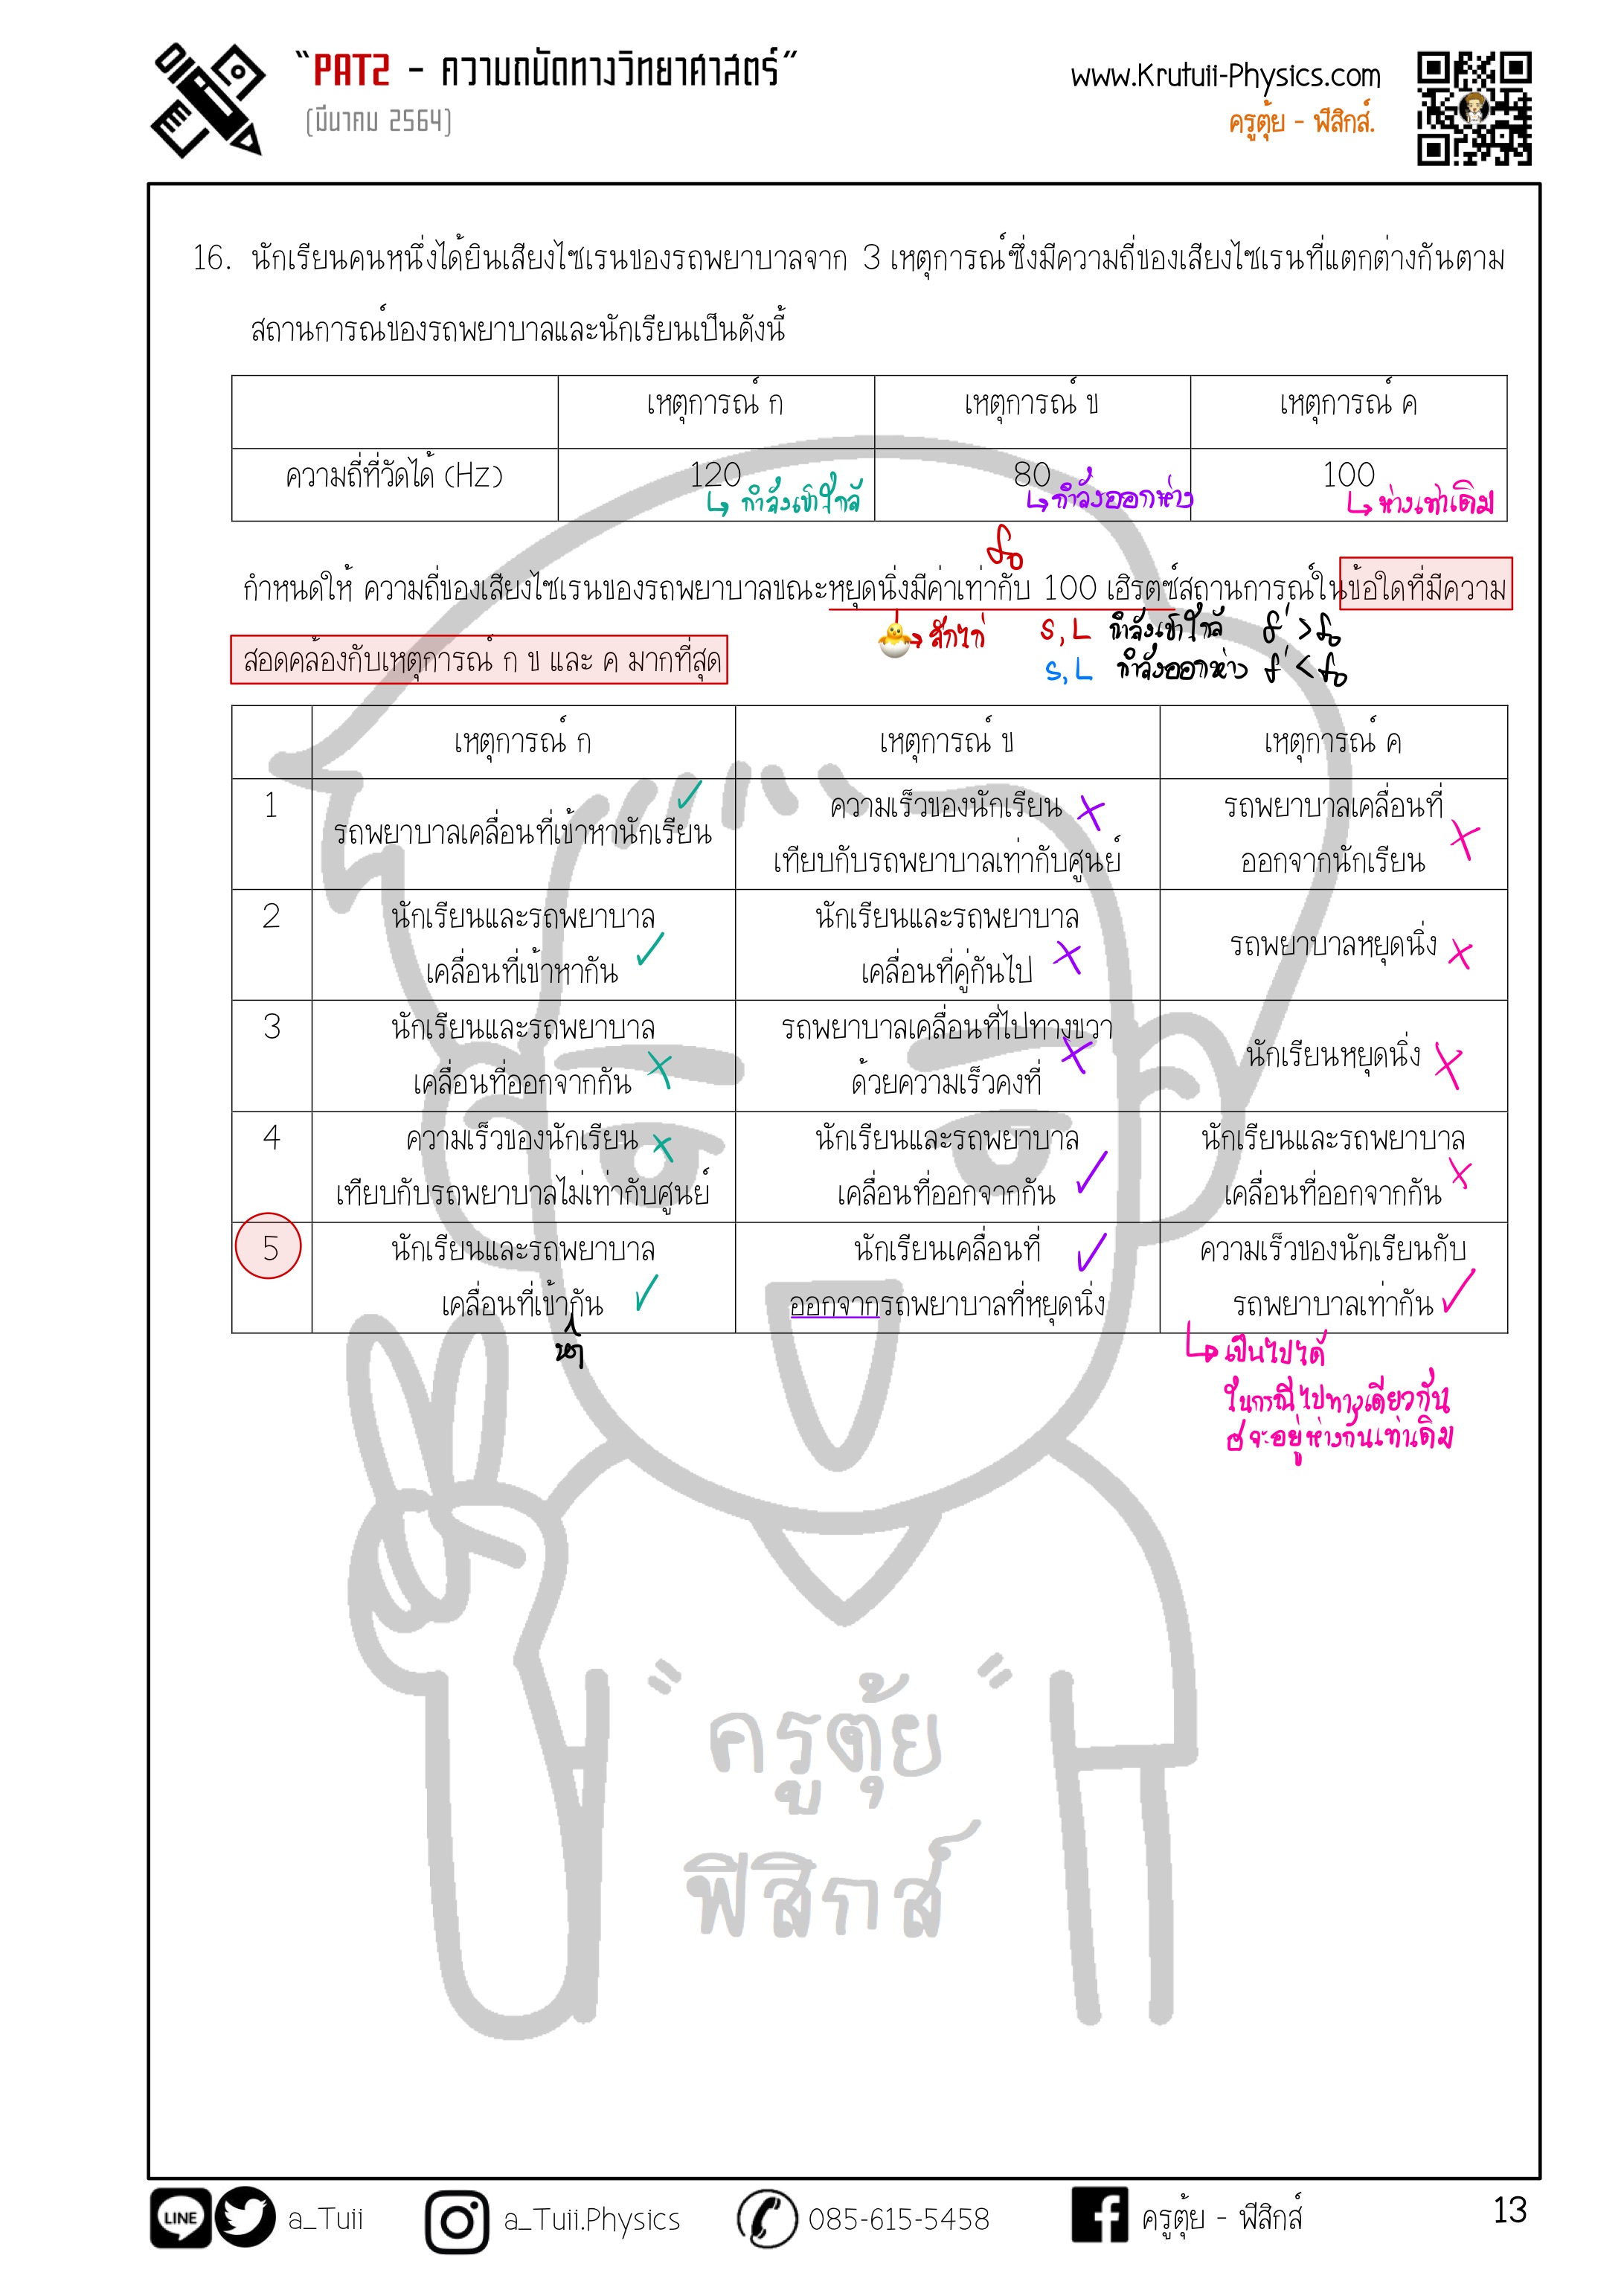 “PAT2 - ความถนัดทางวิทยาศาสตร์”
(มีนาคม 2564)
www.Krutuii-Physics.com
ครูตุ้ย - ฟิสิกส์.
16. นักเรียนคนหนึ่งได้ยินเสียงไซเรนของรถพยาบาลจาก 3 เหตุการณ์ซึ่งมีความถี่ของเสียงไซเรนที่แตกต่างกันตาม
สถานการณ์ของรถพยาบาลและนักเรียนเป็นดังนี้
เหตุการณ์ ก เหตุการณ์ ข เหตุการณ์ ค
ความถี่ที่วัดได้ (Hz) 120 80 100
↳ กำลังเข้าใกล้ ↳ กำลังออกห่าง ↳ ห่างเท่าเดิม
f₀
กำหนดให้ ความถี่ของเสียงไซเรนของรถพยาบาลขณะหยุดนิ่งมีค่าเท่ากับ 100 เฮิรตซ์สถานการณ์ในข้อใดที่มีความ
สอดคล้องกับเหตุการณ์ ก ข และ ค มากที่สุด
S, L กำลังเข้าใกล้ f' > f₀
S, L กำลังออกห่าง f' < f₀
เหตุการณ์ ก เหตุการณ์ ข เหตุการณ์ ค
1 รถพยาบาลเคลื่อนที่เข้าหานักเรียน ✓ ความเร็วของนักเรียน × รถพยาบาลเคลื่อนที่ ×
เทียบกับรถพยาบาลเท่ากับศูนย์ ออกจากนักเรียน
2 นักเรียนและรถพยาบาล นักเรียนและรถพยาบาล รถพยาบาลหยุดนิ่ง ×
เคลื่อนที่เข้าหากัน ✓ เคลื่อนที่คู่กันไป ×
3 นักเรียนและรถพยาบาล รถพยาบาลเคลื่อนที่ไปทางขวา นักเรียนหยุดนิ่ง ×
เคลื่อนที่ออกจากกัน × ด้วยความเร็วคงที่ ×
4 ความเร็วของนักเรียน × นักเรียนและรถพยาบาล นักเรียนและรถพยาบาล
เทียบกับรถพยาบาลไม่เท่ากับศูนย์ เคลื่อนที่ออกจากกัน ✓ เคลื่อนที่ออกจากกัน ×
5 นักเรียนและรถพยาบาล นักเรียนเคลื่อนที่ ✓ ความเร็วของนักเรียนกับ
เคลื่อนที่เข้ากัน ✓ ออกจากรถพยาบาลที่หยุดนิ่ง รถพยาบาลเท่ากัน ✓
หา
↳ เป็นไปได้
ในกรณีไปทางเดียวกัน
จะอยู่ห่างกันเท่าเดิม
"ครูตุ้ย"
ฟิสิกส์
LINE a_Tuii a_Tuii.Physics 085-615-5458 ครูตุ้ย - ฟิสิกส์ 13